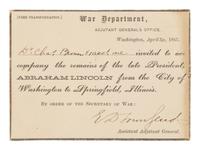 [FREE TRANSPORTATION.]
War Department,
ADJUTANT GENERAL'S OFFICE,
Washington, April 1865.
Dr. Chas. Brown invited to ac-
company the remains of the late President,
ABRAHAM LINCOLN from the City of
Washington to Springfield, Illinois.
BY ORDER OF THE SECRETARY OF WAR:
E D Townsend
Assistant Adjutant General.